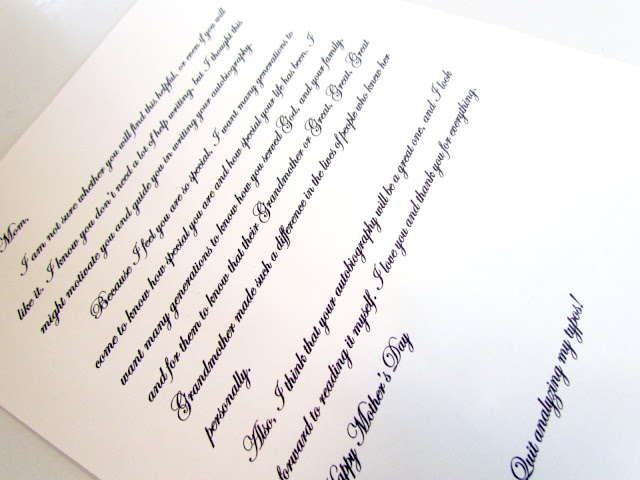 Mom,
I am not sure whether you will find this helpful, or even if you will
like it. I know you don't need a lot of help writing, but I thought this
might motivate you and guide you in writing your autobiography.
Because I feel you are so special, I want many generations to
come to know how special you are and how special your life has been. I
want many generations to know how you served God, and your family,
and for them to know that their Grandmother or Great, Great, Great
Grandmother made such a difference in the lives of people who knew her
personally.
Also, I think that your autobiography will be a great one, and I look
forward to reading it myself. I love you and thank you for everything.
Happy Mother's Day
Quit analyzing my typos!